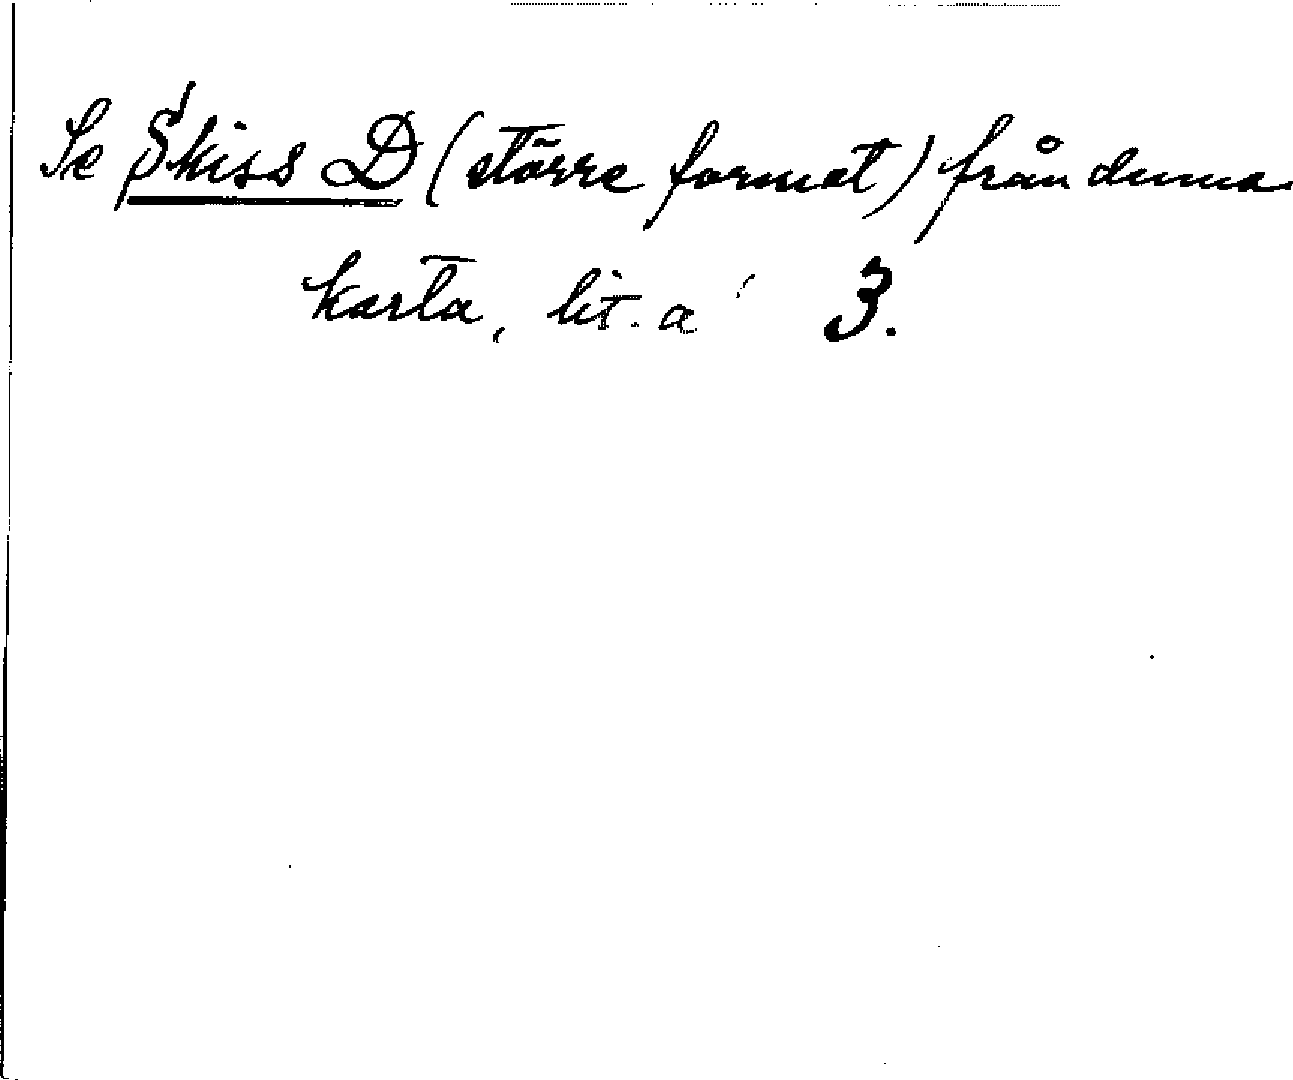 Se Skiss D (större format) från denna
karta, lit. a 3.